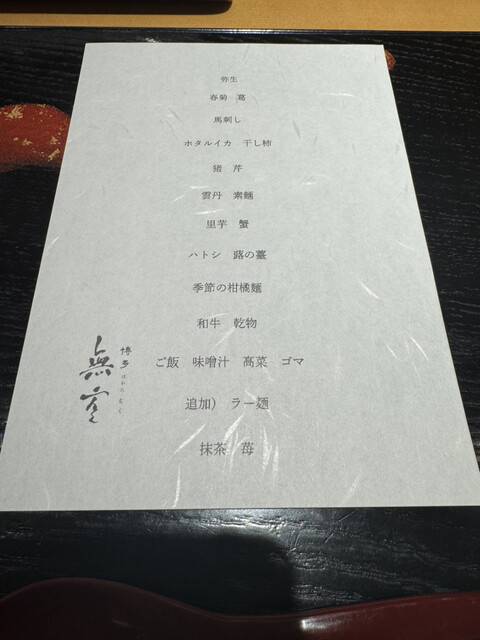 弥生
春菊　葛
馬刺し
ホタルイカ　干し柿
猪　芹
雲丹　素麺
里芋　蟹
ハトシ　蕗の薹
季節の柑橘麺
和牛　乾物
ご飯　味噌汁　高菜　ゴマ
追加）　ラー麺
抹茶　苺
博多